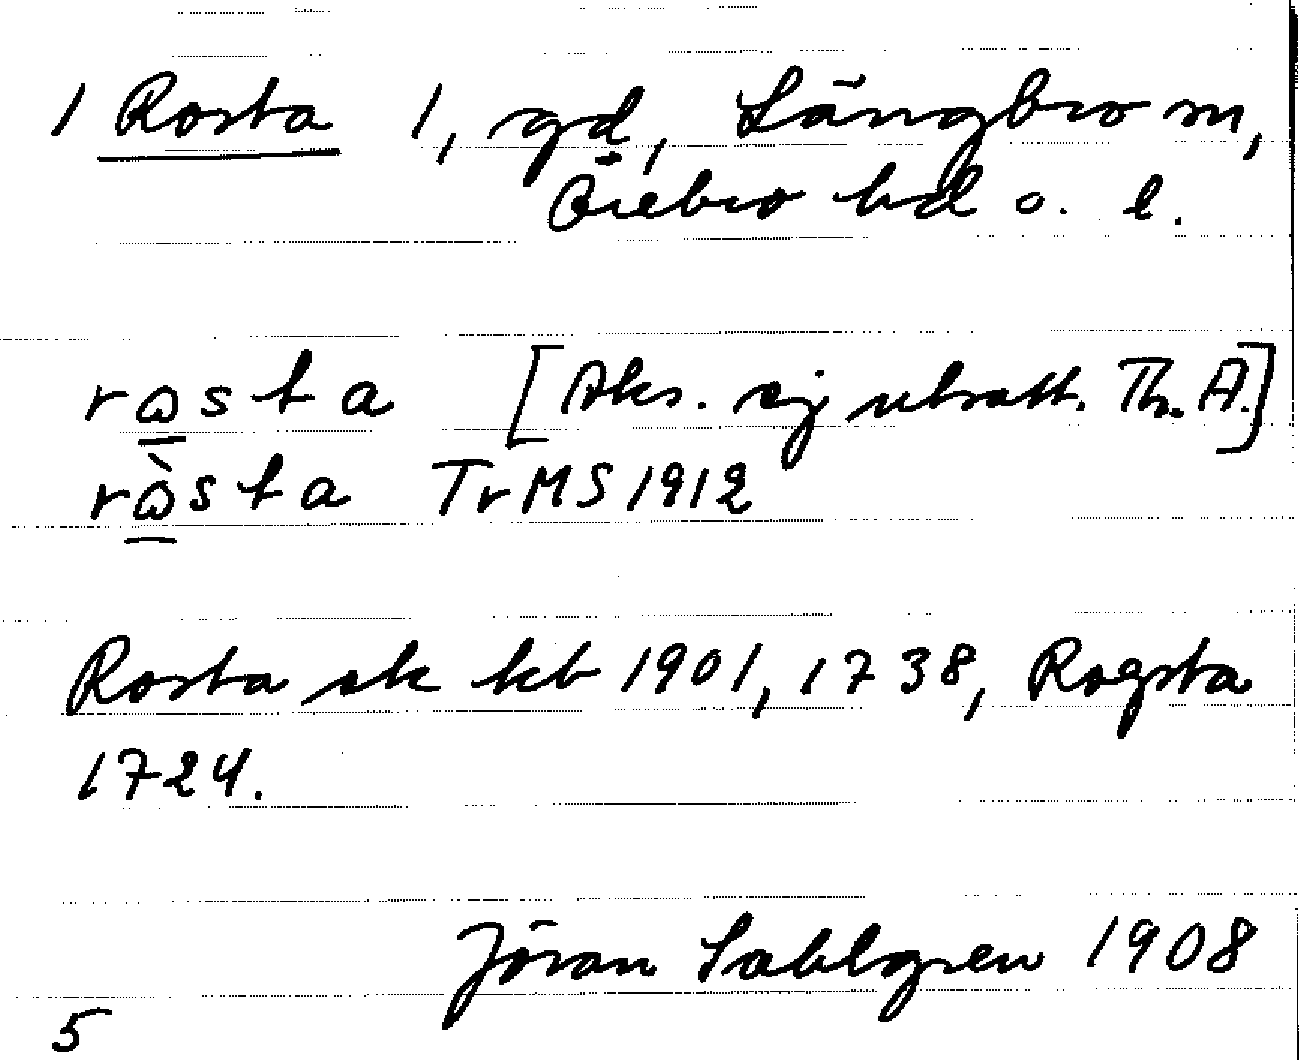 1 Rosta 1, gd, Längbro sn,
Örebro hd o. l.
rɷsta [Aks. ej utsatt. Th. A.]
rɷ̀sta TrMS 1912
Rosta sk kb 1901, 1738, Rogsta
1724.
Jöran Sahlgren 1908
5